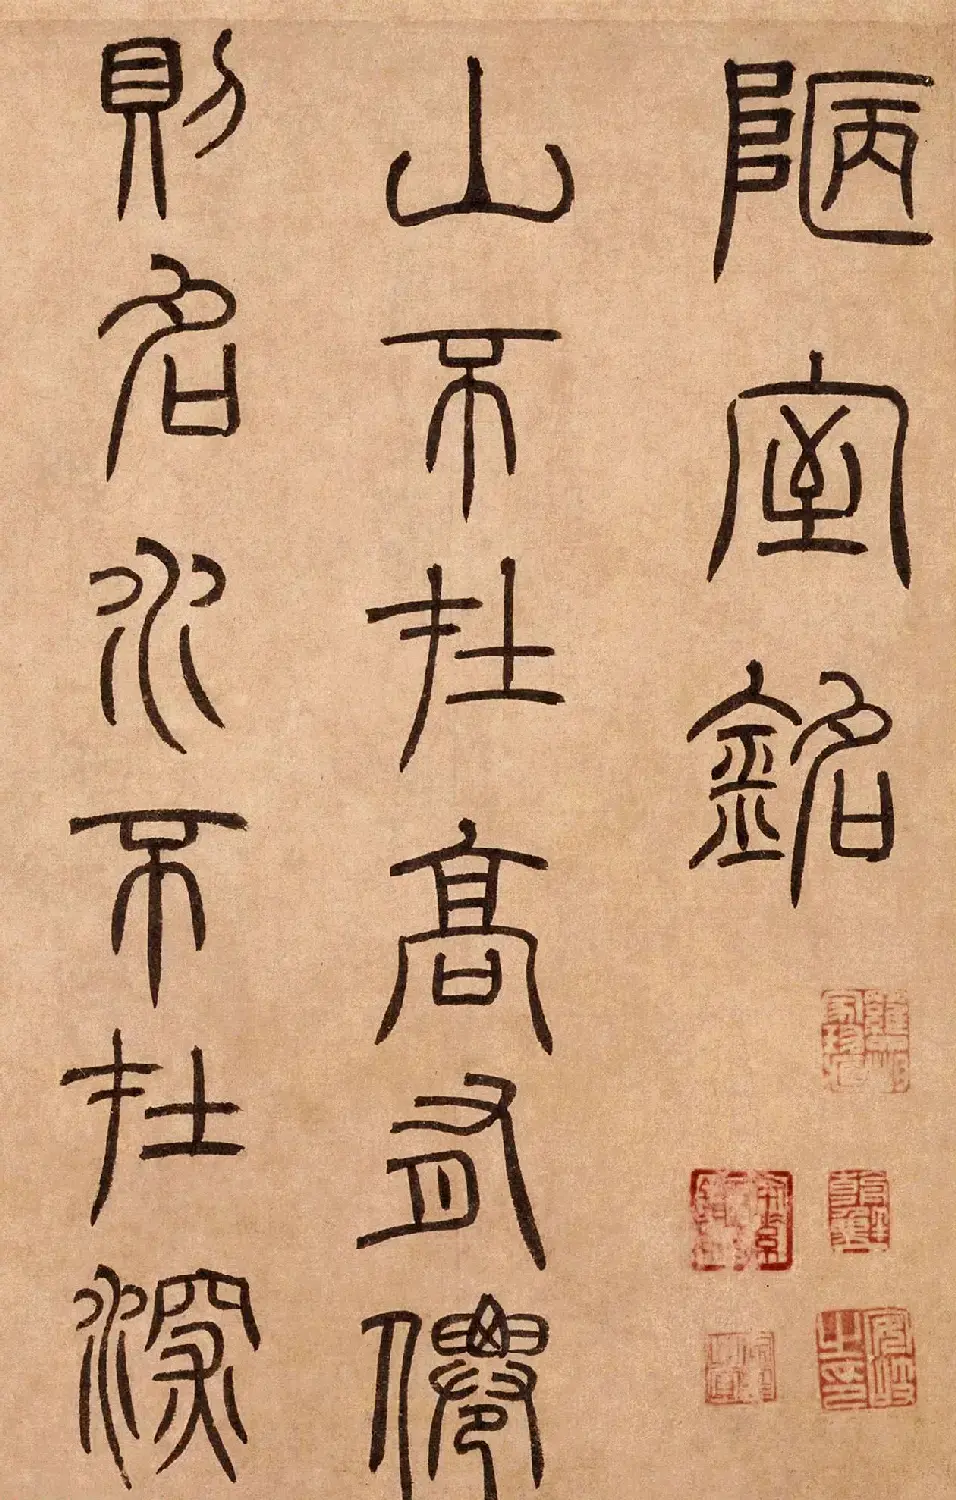 陋室銘
山不在高有僊
則名水不在深